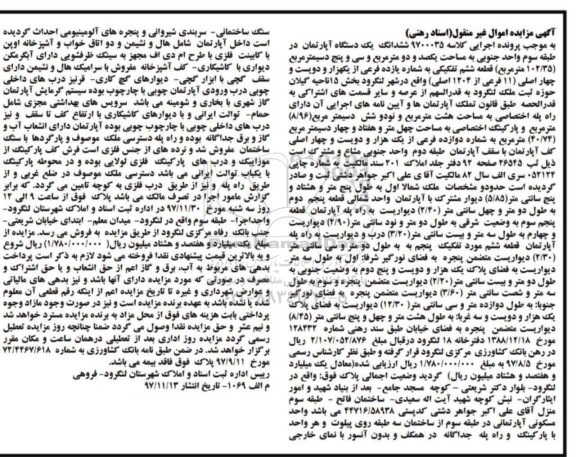 آگهی مزایده اموال غیر منقول(اسناد رهنی)
به موجب پرونده اجرایی کلاسه ۹۷۰۰۰۳۵ ششدانگ یک دستگاه آپارتمان در
طبقه سوم واحد جنوبی به مساحت یکصد و دو مترمربع و سی و پنج دسیمترمربع
(۱۰۲/۳۵ مترمربع) قطعه ششم تفکیکی به شماره یازده فرعی از یکهزار و دویست و
چهار اصلی (۱۱ فرعی از ۱۲۰۴ اصلی) واقع درشهر لنگرود بخش ۱۵ناحیه گیلان
حوزه ثبت ملک لنگرود به قدرالسهم از عرصه و سایر قسمت های اشتراکی به
قدرالحصه طبق قانون تملک آپارتمان ها و آیین نامه های اجرایی آن دارای
راه پله اختصاصی به مساحت هشت مترمربع و نودو شش دسیمتر مربع(۸/۹۶
مترمربع و پارکینگ اختصاصی به مساحت چهل متر و هفتاد و چهار دسیمتر مربع
(۴۰/۷۴) مترمربع به شماره دوازده فرعی از یک هزار و دویست و چهار اصلی
کف آپارتمان با سقف آپارتمان طبقه دوم واحد جنوبی مشاع و مشترک است
ذیل ثبت ۲۶۵۴۵ صفحه ۹۲ دفتر جلد املاک ۲۰۱ سند مالکیت به شماره چاپی
۰۵۲۱۲۴ سری الف سال ۸۲ مالکیت آقای علی اکبر جواهردشتی ثبت و صادر
گردیده است حدودو مشخصات ملک شمالا اول به طول پنج متر و هشتاد و
پنج سانتی متر(۵/۸۵) دیوار مشترک با آپارتمان واحد شمالی قطعه پنجم دوم
به طول دو متر و چهل سانتی متر (۲/۴۰) دیواریست به راه پله آپارتمان قطعه
پنجم سوم به وضعیت شرقی به طول دو متر و نود سانتی متر(۲/۹۰) دیواریست
و چهارم به طول سه متر و بیست سانتی متر(۳/۲۰) درب و دیواریست به راه پله
آپارتمان قطعه ششم مورد تفکیک پنجم به به طول دو متر و سی سانتی متر
(۲/۳۰) دیواریست متضمن پنجره به فضای نورگیر شرقا: اول به طول سه متر
دیواریست به فضای پلاک یک هزار و دویست و پنج دوم به وضعیت جنوبی به
طول دو متر و بیست سانتی متر(۲/۲۰) دیواریست متضمن پنجره و سوم به طول
سه متر و شصت سانتی متر (۳/۶۰) دیواریست متضمن پنجره به فضای نورگیر
جنوبا: به طول دوازده متر و سی سانتی متر (۱۲/۳۰) دیواریست به فضای پلاک
یک هزار و دویست و سه غربا: به طول هشت متر و چهل و پنج سانتی متر (۸/۴۵)
دیواریست متضمن پنجره به فضای خیابان طبق سند رهنی شماره ۱۲۸۴۳۲
مورخ ۱۳۸۸/۱۲/۱۸ دفترخانه ۱۸ لنگرود درقبال مبلغ ۲/۱۰۷/۰۵۲/۸۷۶ ریال
در رهن بانک کشاورزی مرکزی لنگرود قرار گرفته و طبق نظر کارشناس رسمی
مورخ ۹۷/۸/۵ به مبلغ ۱/۷۸۰/۰۰۰/۰۰۰ ریال ارزیابی شده(معادل یک میلیارد
و هفتصد و هشتاد میلیون ریال) گردید وضعیت اجمالی پلاک فوق: واقع در
لنگرود- بلوار دکتر شریعتی - کوچه مسجد جامع- بعد از بنیاد شهید و امور
ایثارگران- نبش کوچه شهید آیت اله سعیدی- ساختمان فاتح - طبقه سوم
منزل آقای علی اکبر جواهر دشتی کدپستی ۴۴۷۱۶/۵۸۹۳۸ می باشد واحد
مسکونی آپارتمانی در طبقه سوم از ساختمان سه طبقه روی پیلوت و هر واحد
با پارکینگ و راه پله جداگانه در همکف و بدون آنسور با نمای خارجی
سنگ ساختمانی- سربندی شیروانی و پنجره های آلومینیومی احداث گردیده
است داخل آپارتمان شامل هال و نشیمن و دو اتاق خواب و آشپزخانه اوپن
با کابینت فلزی با طرح ام دی اف مجهز به سینک ظرفشویی دارای آبگرمکن
دیواری با کاشیکاری- کف آشپزخانه مفروش با سرامیک هال و نشیمن دارای
سقف گچی با ابزار گچی- دیوارهای گچ کاری- قرنیز درب های داخلی
چوبی درب ورودی آپارتمان چوبی با چارچوب بوده سیستم گرمایش آپارتمان
گاز شهری با بخاری و شومینه می باشد سرویس های بهداشتی مجزی شامل
حمام- توالت ایرانی و با دیوارهای کاشیکاری با ارتفاع کف تا سقف و نیز
درب های داخلی چوبی با چارچوب چوبی بوده آپارتمان دارای انشعاب آب و
گاز و برق جداگانه بوده و راه پله دسترسی ملک موصوف و پارگردها با سنگ
ساختمان مفروش شد و نرده های از جنس فلزی است فرش کف پارکینگ از
موزاییک و درب های پارکینگ فلزی لولایی بوده و در محوطه پارکینگ
با یکباب توالت ایرانی می باشد دسترسی ملک موصوف در ضلع غربی و از
طریق راه پله و نیز از طریق درب فلزی به کوچه تامین می گردد. که برابر
گزارش مامور اجرا در تصرف مالک می باشد پلاک فوق از ساعت ۹ الی ۱۲
روز سه شنبه مورخ ۹۷/۱۱/۳۰ در اداره ثبت اسناد و املاک شهرستان لنگرود-
واحداجرا- طبقه سوم واقع در لنگرود- میدان معلم- ابتدای خیابان شریعتی-
جنب بانک رفاه مرکزی لنگرود از طریق مزایده به فروش می رسد. مزایده از
مبلغ یک میلیارد و هفتصد و هشتاد میلیون ریال(۱/۷۸۰/۰۰۰/۰۰۰) ریال شروع
و به بالاترین قیمت پیشنهادی نقدا فروخته می شود لازم به ذکر است پرداخت
بدهی های مربوط به آب، برق و گاز اعم از حق انشعاب و یا حق اشتراک و
مصرف در صورتی که مورد مزایده دارای آنها باشد و نیز بدهی های مالیاتی
و عوارض شهرداری و غیره تا تاریخ مزایده اعم از اینکه رقم قطعی آن معلوم
شده یا نشده باشد به عهده برنده مزایده است و نیز در صورت وجود مازاد وجوه
پرداختی بابت هزینه های فوق از محل مازاد به برنده مزایده مسترد خواهد شد
و نیم عشر و حق مزایده نقدا وصول می گردد ضمنا چنانچه روز مزایده تعطیل
رسمی گردد مزایده روز اداری بعد از تعطیلی درهمان ساعت و مکان مقرر
برگزار خواهد شد. در ضمن طبق نامه بانک کشاورزی به شماره ۷۲/۴۴۶۷/۶۱۸
مورخ ۹۷/۹/۱۱ پلاک فوق فاقد بیمه می باشد.
رییس اداره ثبت اسناد و املاک شهرستان لنگرود- فروهی
م الف ۱۰۶۹- تاریخ انتشار ۹۷/۱۱/۱۳